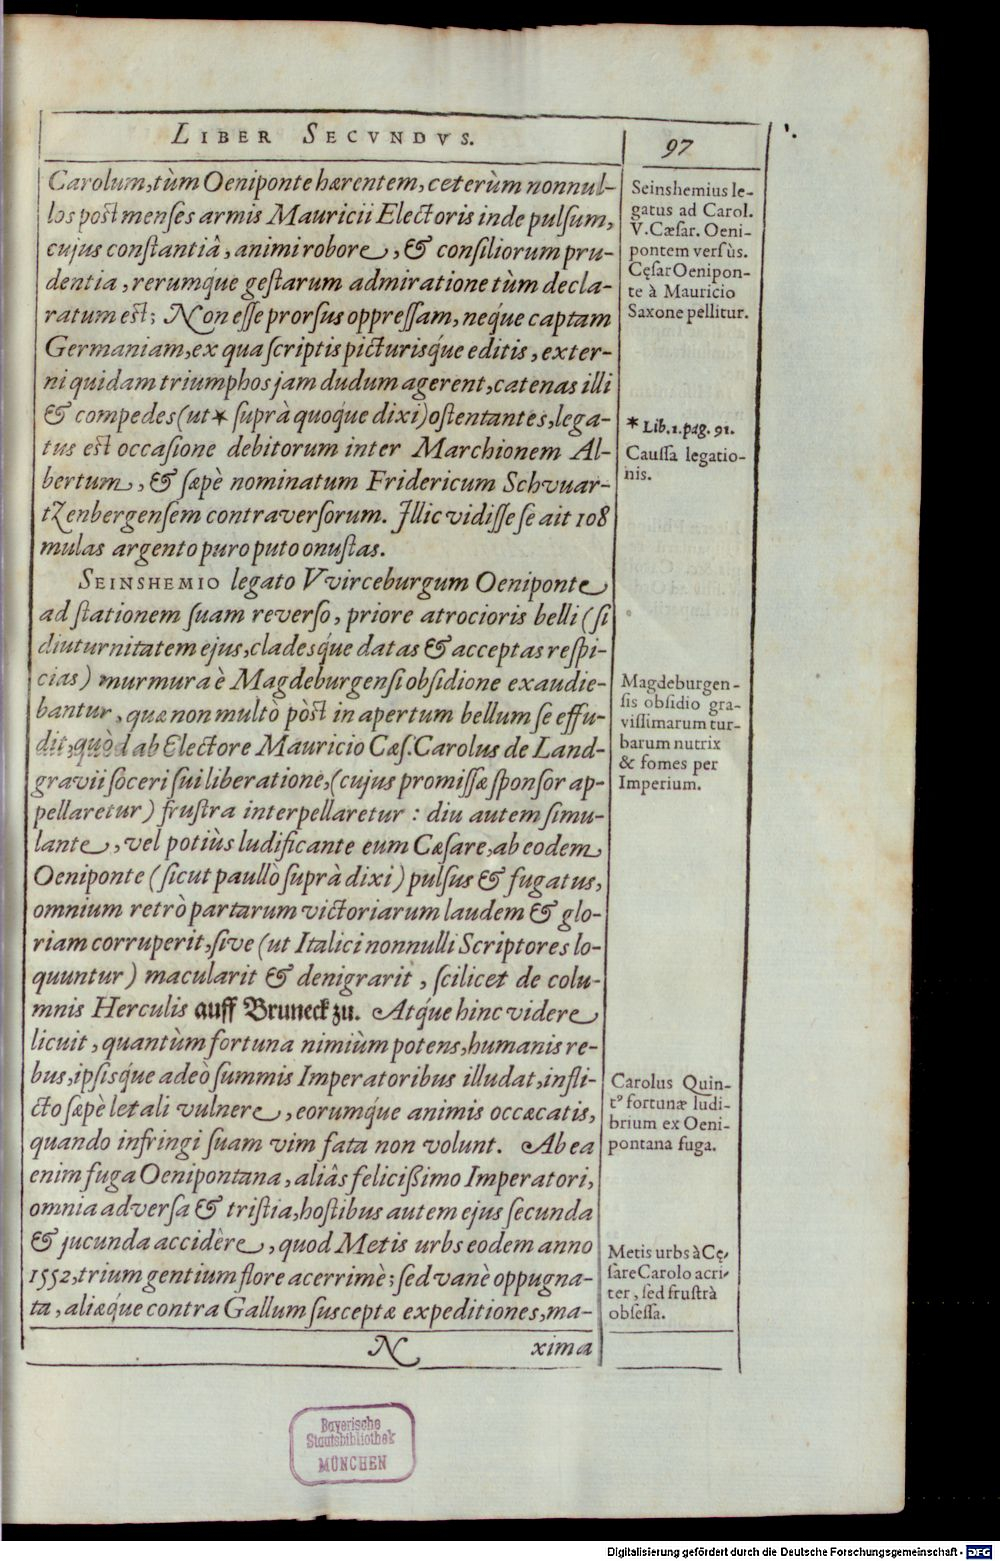 LIBER SECVNDVS.
97
Carolum, tùm Oeniponte hærentem, ceterùm nonnul-
los post menses armis Mauricii Electoris inde pulsum,
cujus constantiâ, animi robore, & consiliorum pru-
dentia, rerumq́ue gestarum admiratione tùm decla-
ratum est; Non esse prorsus oppressam, neq́ue captam
Germaniam, ex qua scriptis picturisq́ue editis, exter-
ni quidam triumphos jam dudum agerent, catenas illi
& compedes (ut * suprà quoq́ue dixi) ostentantes, lega-
tus est occasione debitorum inter Marchionem Al-
bertum, & sæpè nominatum Fridericum Schvuar-
tzenbergensem contraversorum. Illic vidisse se ait 108
mulas argento puro puto onustas.
SEINSHEMIO legato Vvirceburgum Oeniponte
ad stationem suam reverso, priore atrocioris belli (si
diuturnitatem ejus, cladesq́ue datas & acceptas respi-
cias) murmura è Magdeburgensi obsidione exaudie-
bantur, quæ non multò pòst in apertum bellum se effu-
dit, quòd ab Electore Mauricio Cæs. Carolus de Land-
gravii soceri sui liberatione, (cujus promissæ sponsor ap-
pellaretur) frustra interpellaretur: diu autem simu-
lante, vel potiùs ludificante eum Cæsare, ab eodem
Oeniponte (sicut paullò suprà dixi) pulsus & fugatus,
omnium retrò partarum victoriarum laudem & glo-
riam corruperit, sive (ut Italici nonnulli Scriptores lo-
quuntur) macularit & denigrarit, scilicet de colu-
mnis Herculis auff Bruneck zu. Atq́ue hinc videre
licuit, quantùm fortuna nimiùm potens, humanis re-
bus, ipsisq́ue adeò summis Imperatoribus illudat, infli-
cto sæpè letali vulnere, eorumq́ue animis occæcatis,
quando infringi suam vim fata non volunt. Ab ea
enim fuga Oenipontana, aliâs felicißimo Imperatori,
omnia adversa & tristia, hostibus autem ejus secunda
& jucunda accidêre, quod Metis urbs eodem anno
1552, trium gentium flore acerrimè; sed vanè oppugna-
ta, aliæq́ue contra Gallum susceptæ expeditiones, ma-
N
xima
Seinshemius le-
gatus ad Carol.
V. Cæsar. Oeni-
pontem versùs.
Cęsar Oenipon-
te à Mauricio
Saxone pellitur.
* Lib. 1. pag. 91.
Caussa legatio-
nis.
Magdeburgen-
sis obsidio gra-
vissimarum tur-
barum nutrix
& fomes per
Imperium.
Carolus Quin-
tꝰ fortunæ ludi-
brium ex Oeni-
pontana fuga.
Metis urbs à Cę-
sare Carolo acri-
ter, sed frustrà
obsessa.
Bayerische
Staatsbibliothek
MÜNCHEN
Digitalisierung gefördert durch die Deutsche Forschungsgemeinschaft - DFG